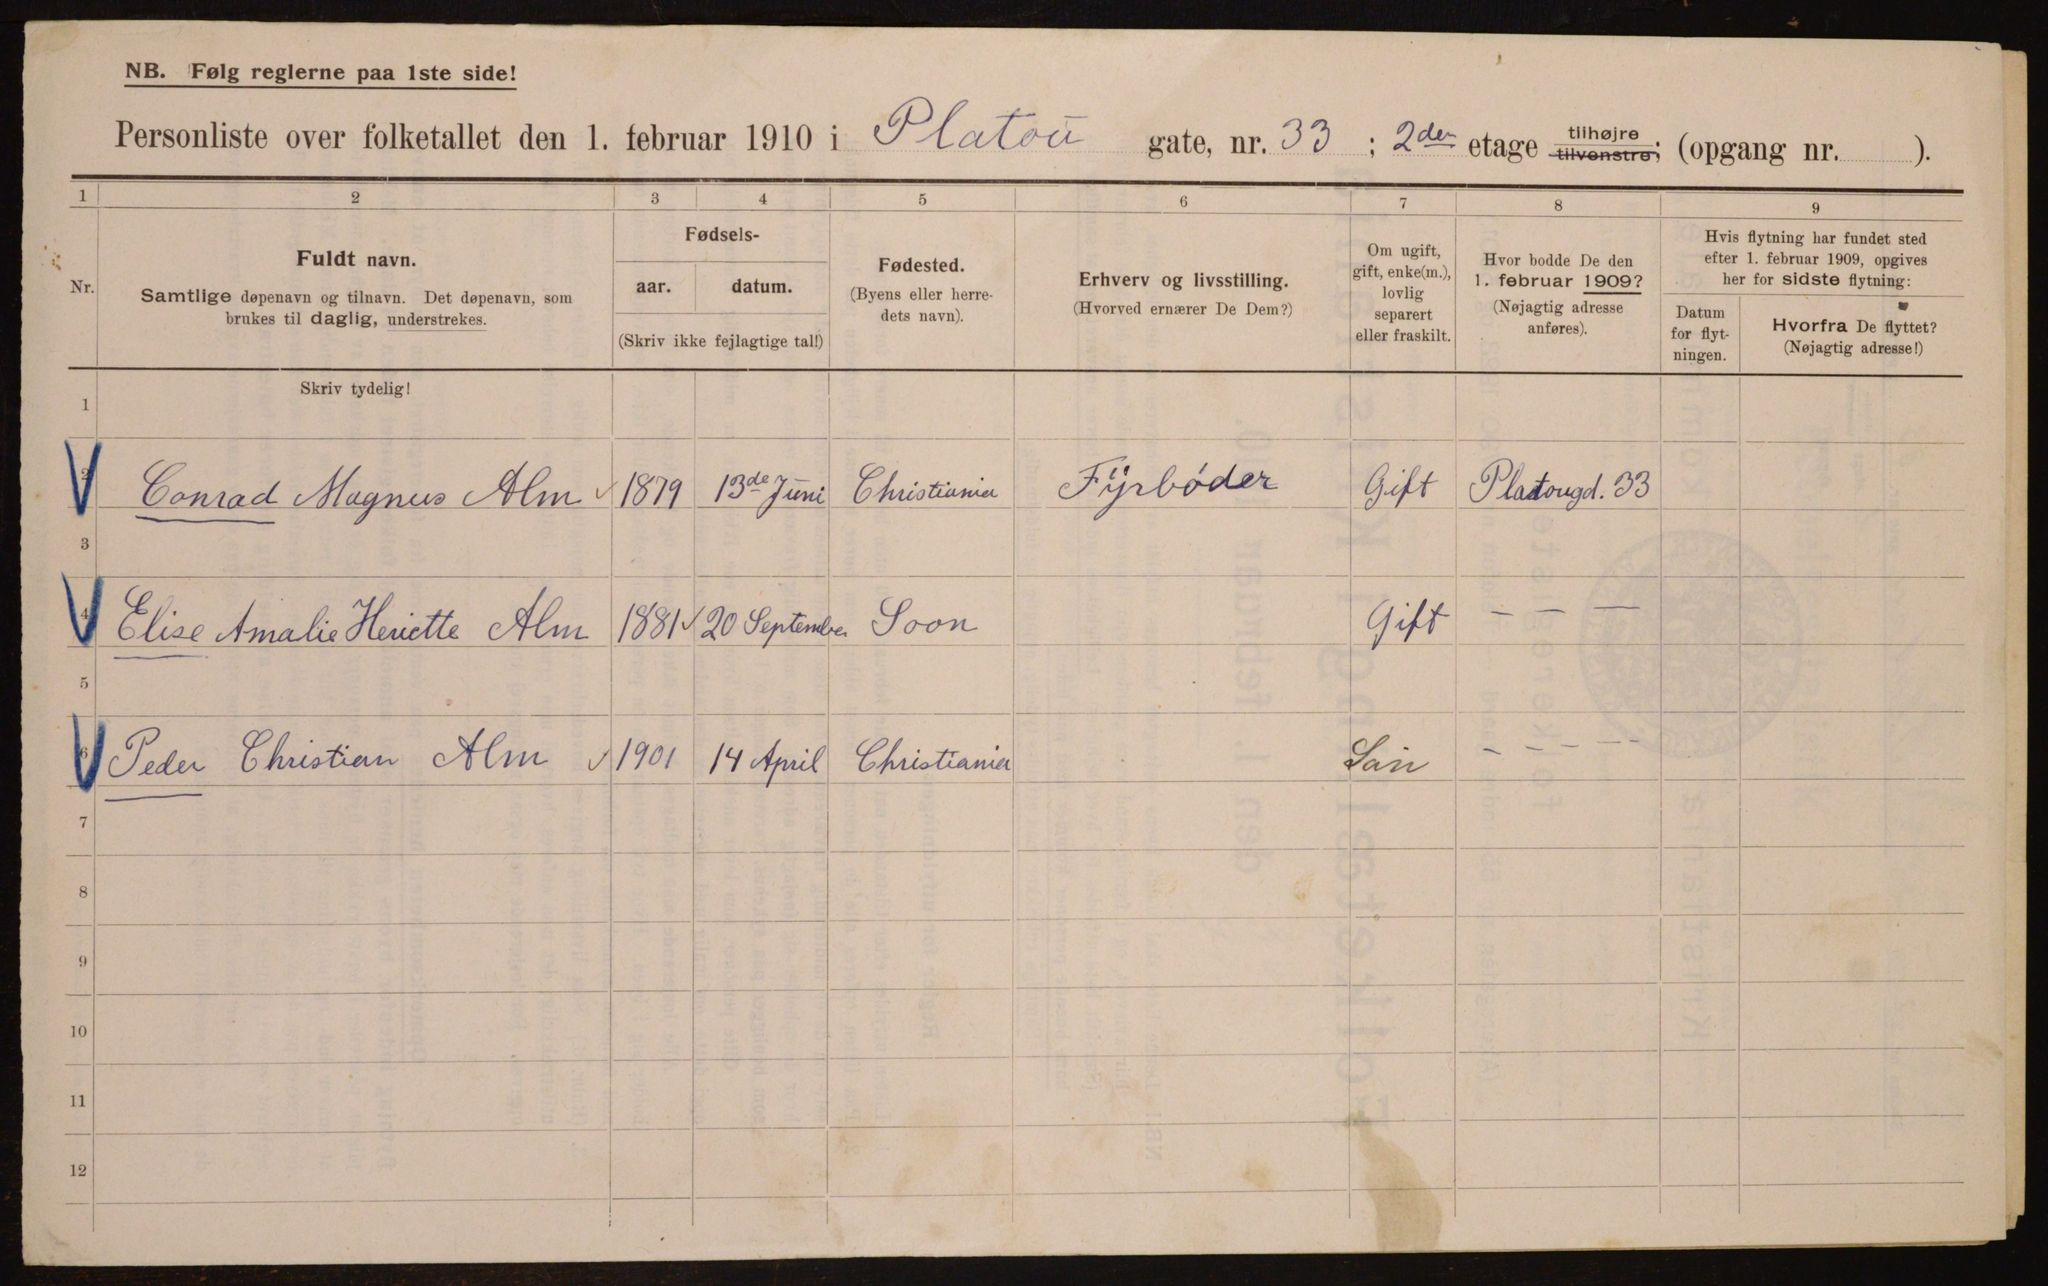 NB. Følg reglerne paa 1ste side!
Personliste over folketallet den 1. februar 1910 i Platou gate, nr. 33 ; 2den etage tilhøjre tilvenstre; (opgang nr. ).
1 2 3 4 5 6 7 8 9
Nr.
Fuldt navn.
Samtlige døpenavn og tilnavn. Det døpenavn, som
brukes til daglig, understrekes.
Fødsels-
aar. datum.
(Skriv ikke fejlagtige tal!)
Fødested.
(Byens eller herre-
dets navn).
Erhverv og livsstilling.
(Hvorved ernærer De Dem?)
Om ugift,
gift, enke(m.),
lovlig
separert
eller fraskilt.
Hvor bodde De den
1. februar 1909?
(Nøjagtig adresse
anføres).
Hvis flytning har fundet sted
efter 1. februar 1909, opgives
her for sidste flytning:
Datum
for flyt-
ningen.
Hvorfra De flyttet?
(Nøjagtig adresse!)
Skriv tydelig!
1
2 Conrad Magnus Alm ✓ 1879 13de Juni Christiania Fyrbøder Gift Platougd. 33
3
4 Elise Amalie Heriette Alm 1881 ✓ 20 September Soon Gift — — —
5
6 Peder Christian Alm ✓ 1901 14 April Christiania Sön – – – —
7
8
9
10
11
12